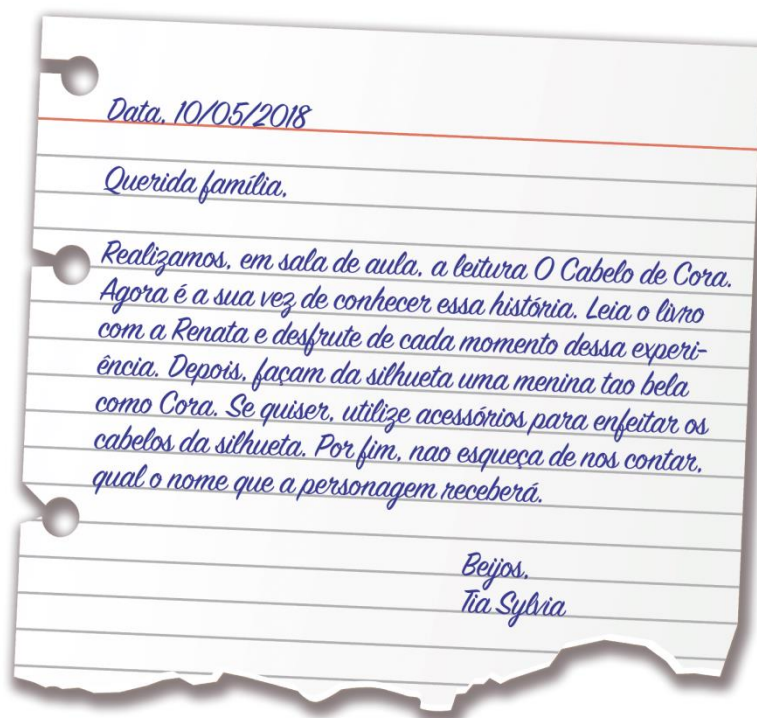 Data, 10/05/2018
Querida família,
Realizamos, em sala de aula, a leitura O Cabelo de Cora.
Agora é a sua vez de conhecer essa história. Leia o livro
com a Renata e desfrute de cada momento dessa experi-
ência. Depois, façam da silhueta uma menina tao bela
como Cora. Se quiser, utilize acessórios para enfeitar os
cabelos da silhueta. Por fim, nao esqueça de nos contar,
qual o nome que a personagem receberá.
Beijos,
Tia Sylvia